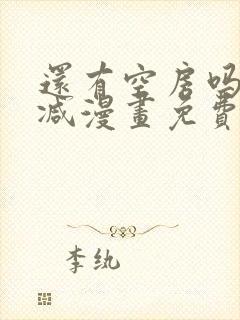 還有空房吗
减漫畫免費
李纨